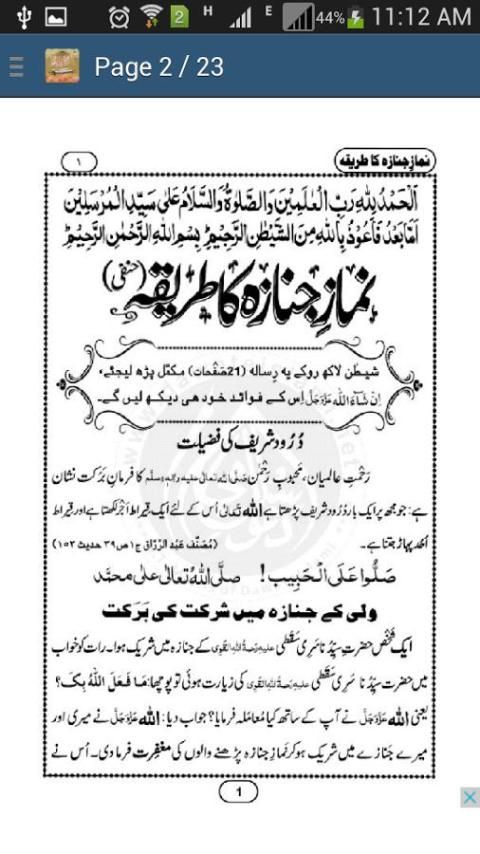 2 H E 44% 11:12 AM
Page 2 / 23
نمازِ جنازہ کا طریقہ
۱
اَلْحَمْدُ لِلّٰہِ رَبِّ الْعٰلَمِیْنَ وَالصَّلٰوۃُ وَالسَّلَامُ عَلٰی سَیِّدِ الْمُرْسَلِیْنَ
اَمَّا بَعْدُ فَاَعُوْذُ بِاللّٰہِ مِنَ الشَّیْطٰنِ الرَّجِیْمِ ؕ بِسْمِ اللّٰہِ الرَّحْمٰنِ الرَّحِیْمِ ؕ
نمازِ جنازہ کا طریقہ (حنفی)
شیطٰن لاکھ روکے یہ رسالہ (21صَفْحات) مکمّل پڑھ لیجئے،
اِنْ شَآءَاللہ عَزَّوَجَلَّ اِس کے فوائد خود ھی دیکھ لیں گے۔
دُرُود شریف کی فضیلت
رَحْمتِ عالمیان، محبوبِ رَحْمٰن صلَّی اللہ تعالٰی علیہ واٰلہٖ وسلَّم کا فرمانِ بَرَکت نشان
ہے: جو مجھ پر ایک بار دُرُود شریف پڑھتا ہے اللہ تعالٰی اُس کے لئے ایک قیراط اَجْر لکھتا ہے اور قیراط
اُحُد پہاڑ جتنا ہے۔ (مُصَنَّف عَبْدُ الرَّزّاق ج۱ص۳۹ حدیث ۱۵۳)
صَلُّوا عَلَی الْحَبِیب! صلَّی اللہُ تعالٰی علٰی محمَّد
ولی کے جنازہ میں شرکت کی بَرَکت
ایک شَخْص حضرتِ سیِّدُنا سَری سَقَطی علیہ رحمۃُ اللہِ القوی کے جنازہ میں شریک ہوا۔ رات کو خواب
میں حضرت سیِّدُنا سَری سَقَطی علیہ رحمۃُ اللہِ القوی کی زیارت ہوئی تو پوچھا: مَا فَعَلَ اللّٰہُ بِکَ؟
یعنی اللہ عَزَّوَجَلَّ نے آپ کے ساتھ کیا مُعامَلہ فرمایا؟ جواب دیا: اللہ عَزَّوَجَلَّ نے میری اور
میرے جنازے میں شریک ہو کر نمازِ جنازہ پڑھنے والوں کی مغفِرت فرما دی۔ اُس نے
1